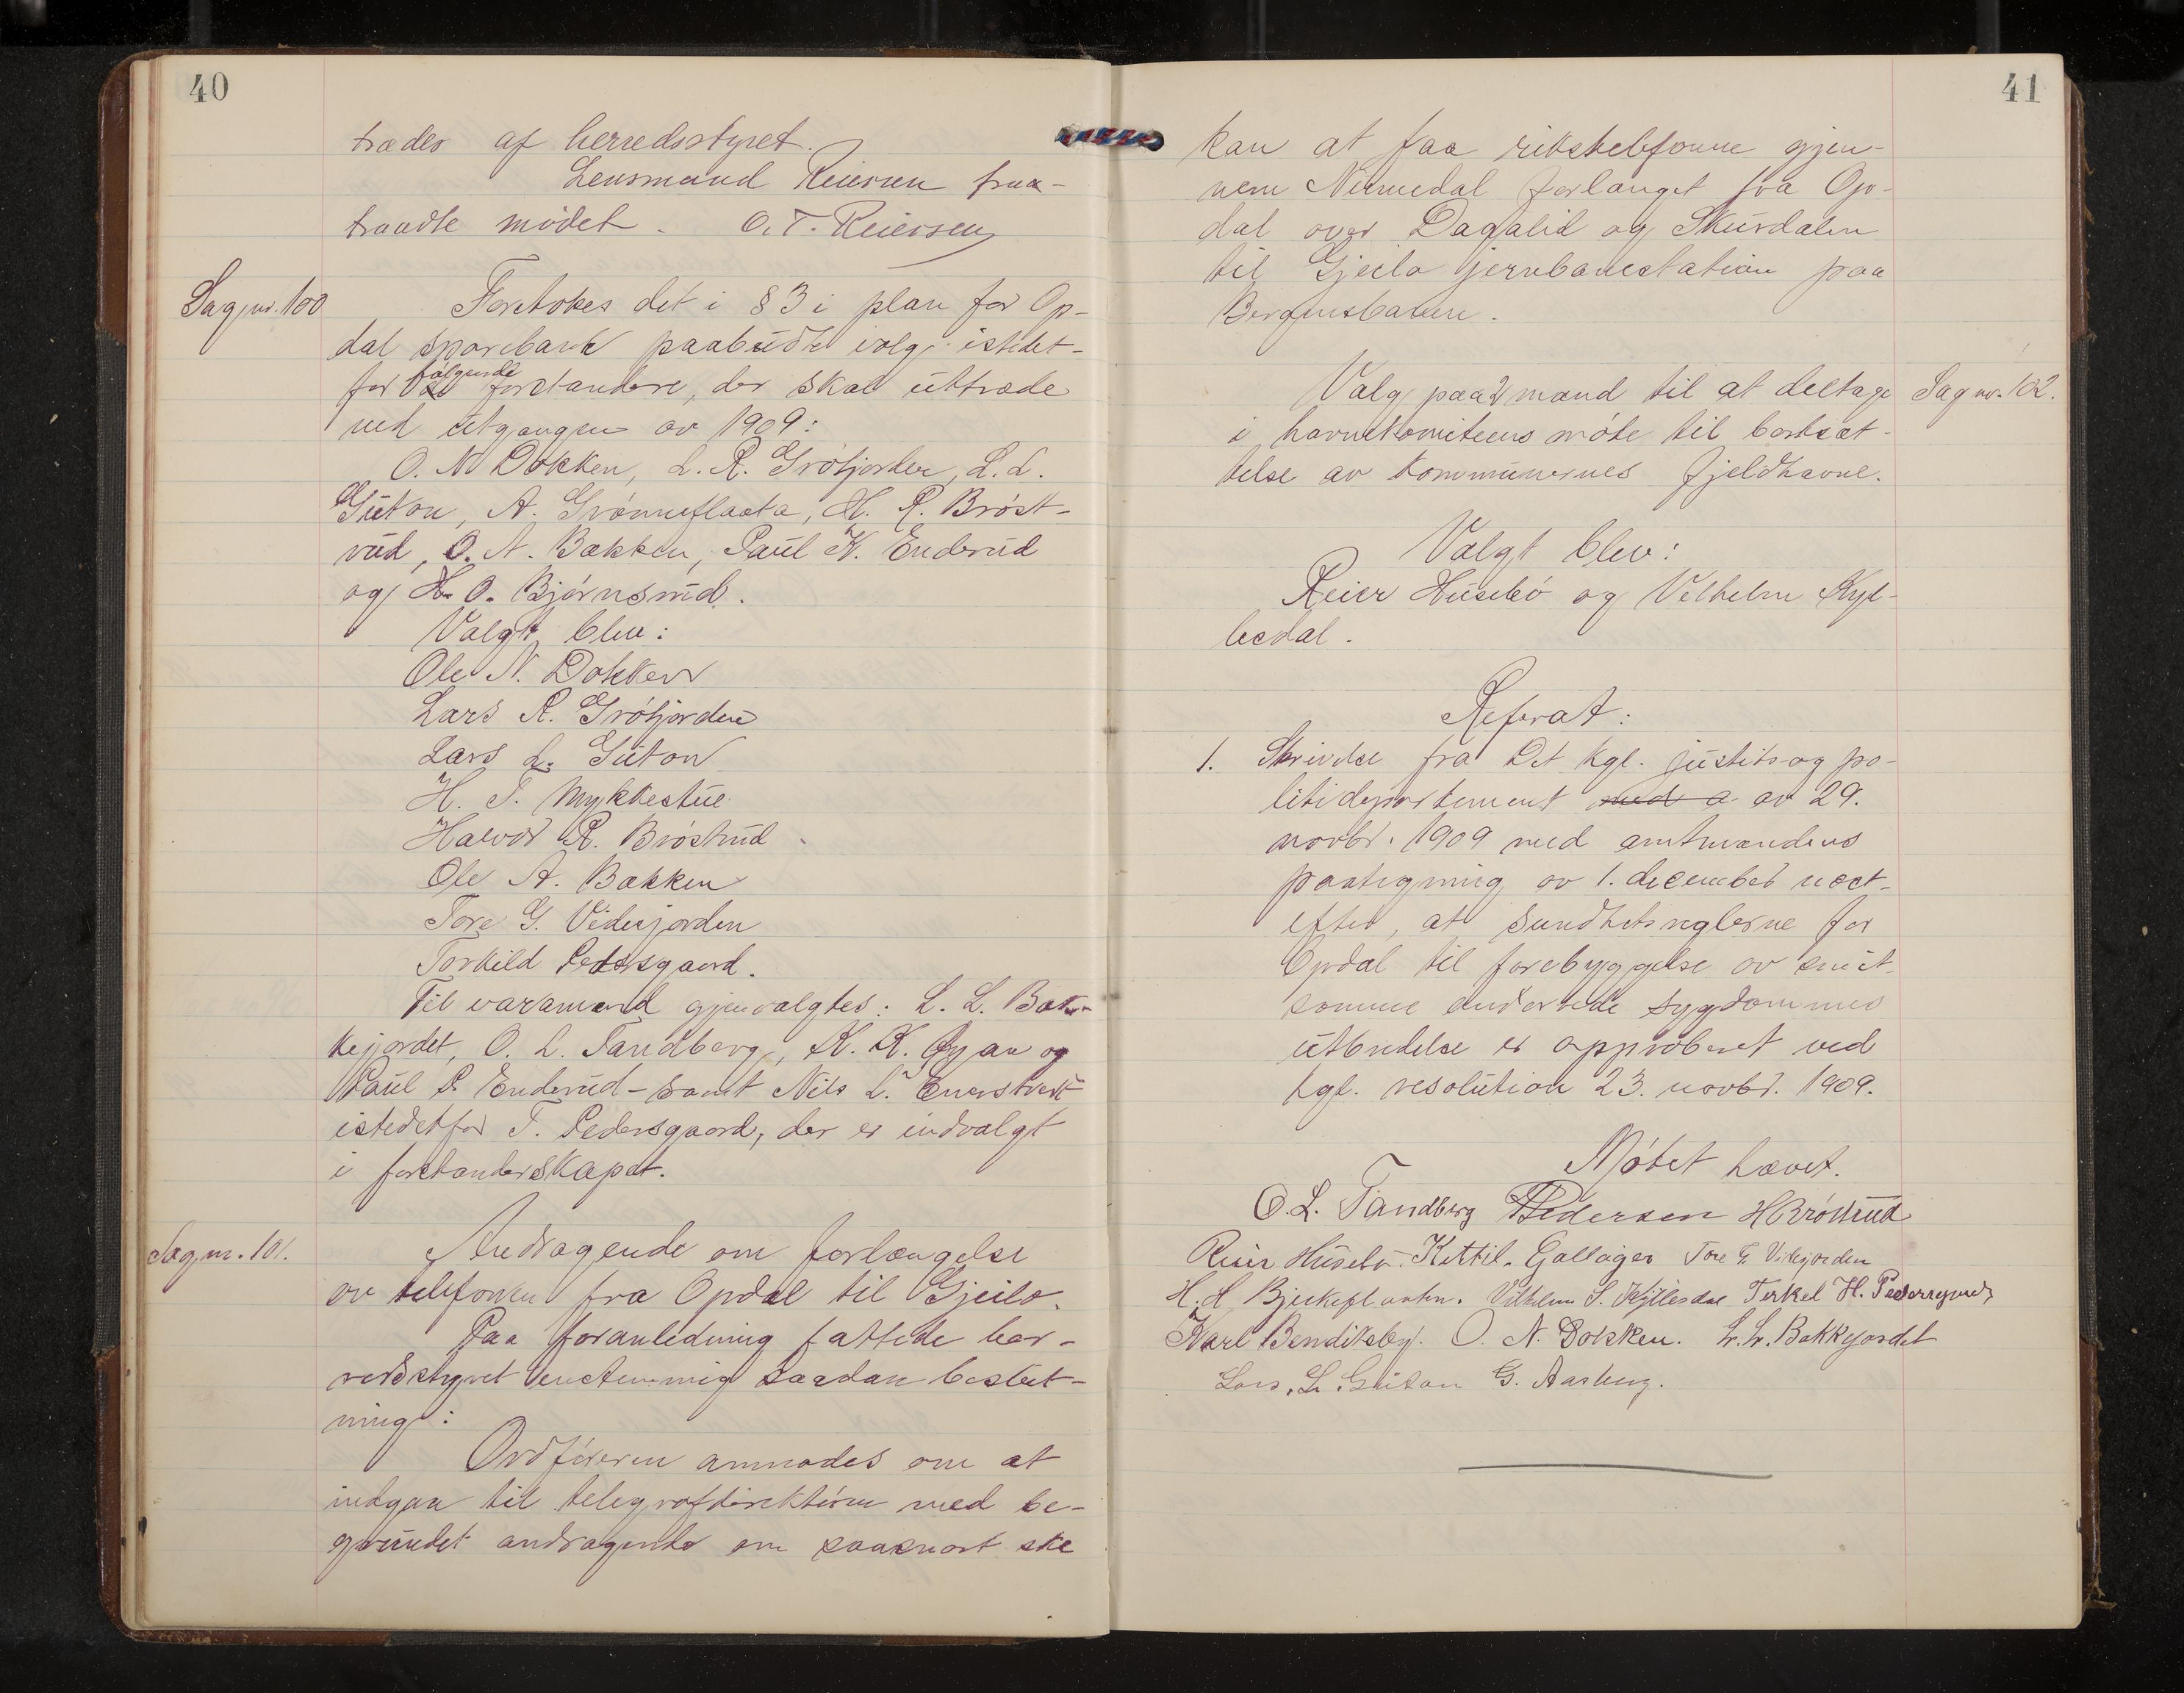 40
trædes af herredsstyret.
Lensmand Reiersen fraa-
traadte mødet. O. T. Reiersen
Sag nr. 100
Foretokes det i § 3 i plan for Op-
dal sparebank paabudte valg istedet-
for følgende forstandere, der skal uttræde
ved utgangen av 1909:
O. N. Dokken, L. R. Grøtjorden, L. L.
Guton, A. Grønneflaata, H. R. Brøst-
rud, O. A. Bakken, Paul K. Enderud
og H. O. Bjørnsrud.
Valgt blev:
Ole N. Dokken
Lars R. Grøtjorden
Lars L. Guton
H. T. Mykkestue
Halvor R. Brøstrud
Ole A. Bakken
Tore G. Vidiejorden
Torkild Pedersgaard.
Til varamænd gjenvalgtes: L. L. Bak-
kejordet, O. L. Tandberg, K. K. Øyan og
Paul P. Enderud – samt Nils L. Enerstvedt
istedetfor T. Pedersgaard, der er indvalgt
i forstanderskapet.
Sag nr. 101.
Andragende om forlængelse
av telefonen fra Opdal til Gjeilo.
Paa foranledning fattede her-
redsstyret enstemmig saadan beslut-
ning:
Ordføreren anmodes om at
indgaa til telegrafdirektøren med be-
grundet andragende om saasnart ske
41
kan at faa rikstelefonne gjen-
nem Numedal forlænget fra Op-
dal over Dagalid og Skurdalen
til Gjeilo jernbanestation paa
Bergensbanen.
Valg paa 2 mænd til at deltage
Sag nr. 102.
i havnekomiteens møte til bortsæt-
telse av kommunernes fjeldhavne.
Valgt blev:
Reier Husebø og Vilhelm Kyl-
lesdal.
Referat:
1. Skrivelse fra Det kgl. justits- og po-
litidepartement med a av 29.
novbr. 1909 med amtmandens
paategning av 1. december næst-
efter, at sundhetsreglerne for
Opdal til forebyggelse av smit-
somme sygdommes
utbredelse er approberet ved
kgl. resolution 23. novbr. 1909.
Møtet hævet.
O. L. Tandberg Pedersen H Brøstrud
Reier Husebø. Kittil. Gallager Tore G. Vidiejorden
H. H. Bjerkeflaaten. Vilhelm S. Kyllesdal Terkel H. Pedersgaard
Karl Benditsby. O. N. Dokken. L. L. Bakkejordet
Lars. L. Guton G. Aasberg.